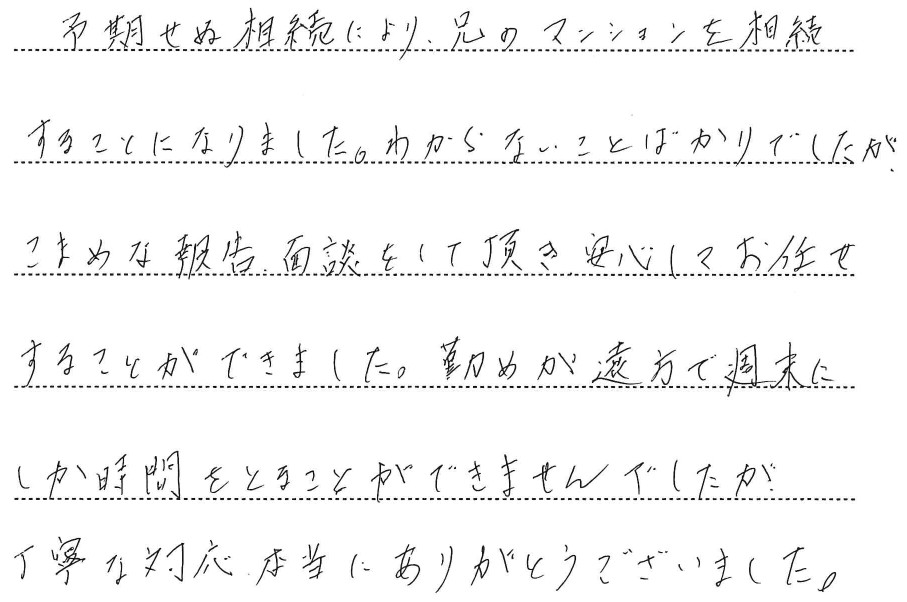 予期せぬ相続により、兄のマンションを相続
することになりました。わからないことばかりでしたが、
こまめな報告、面談をして頂き、安心してお任せ
することができました。勤めが遠方で週末に
しか時間をとることができませんでしたが
丁寧な対応、本当にありがとうございました。